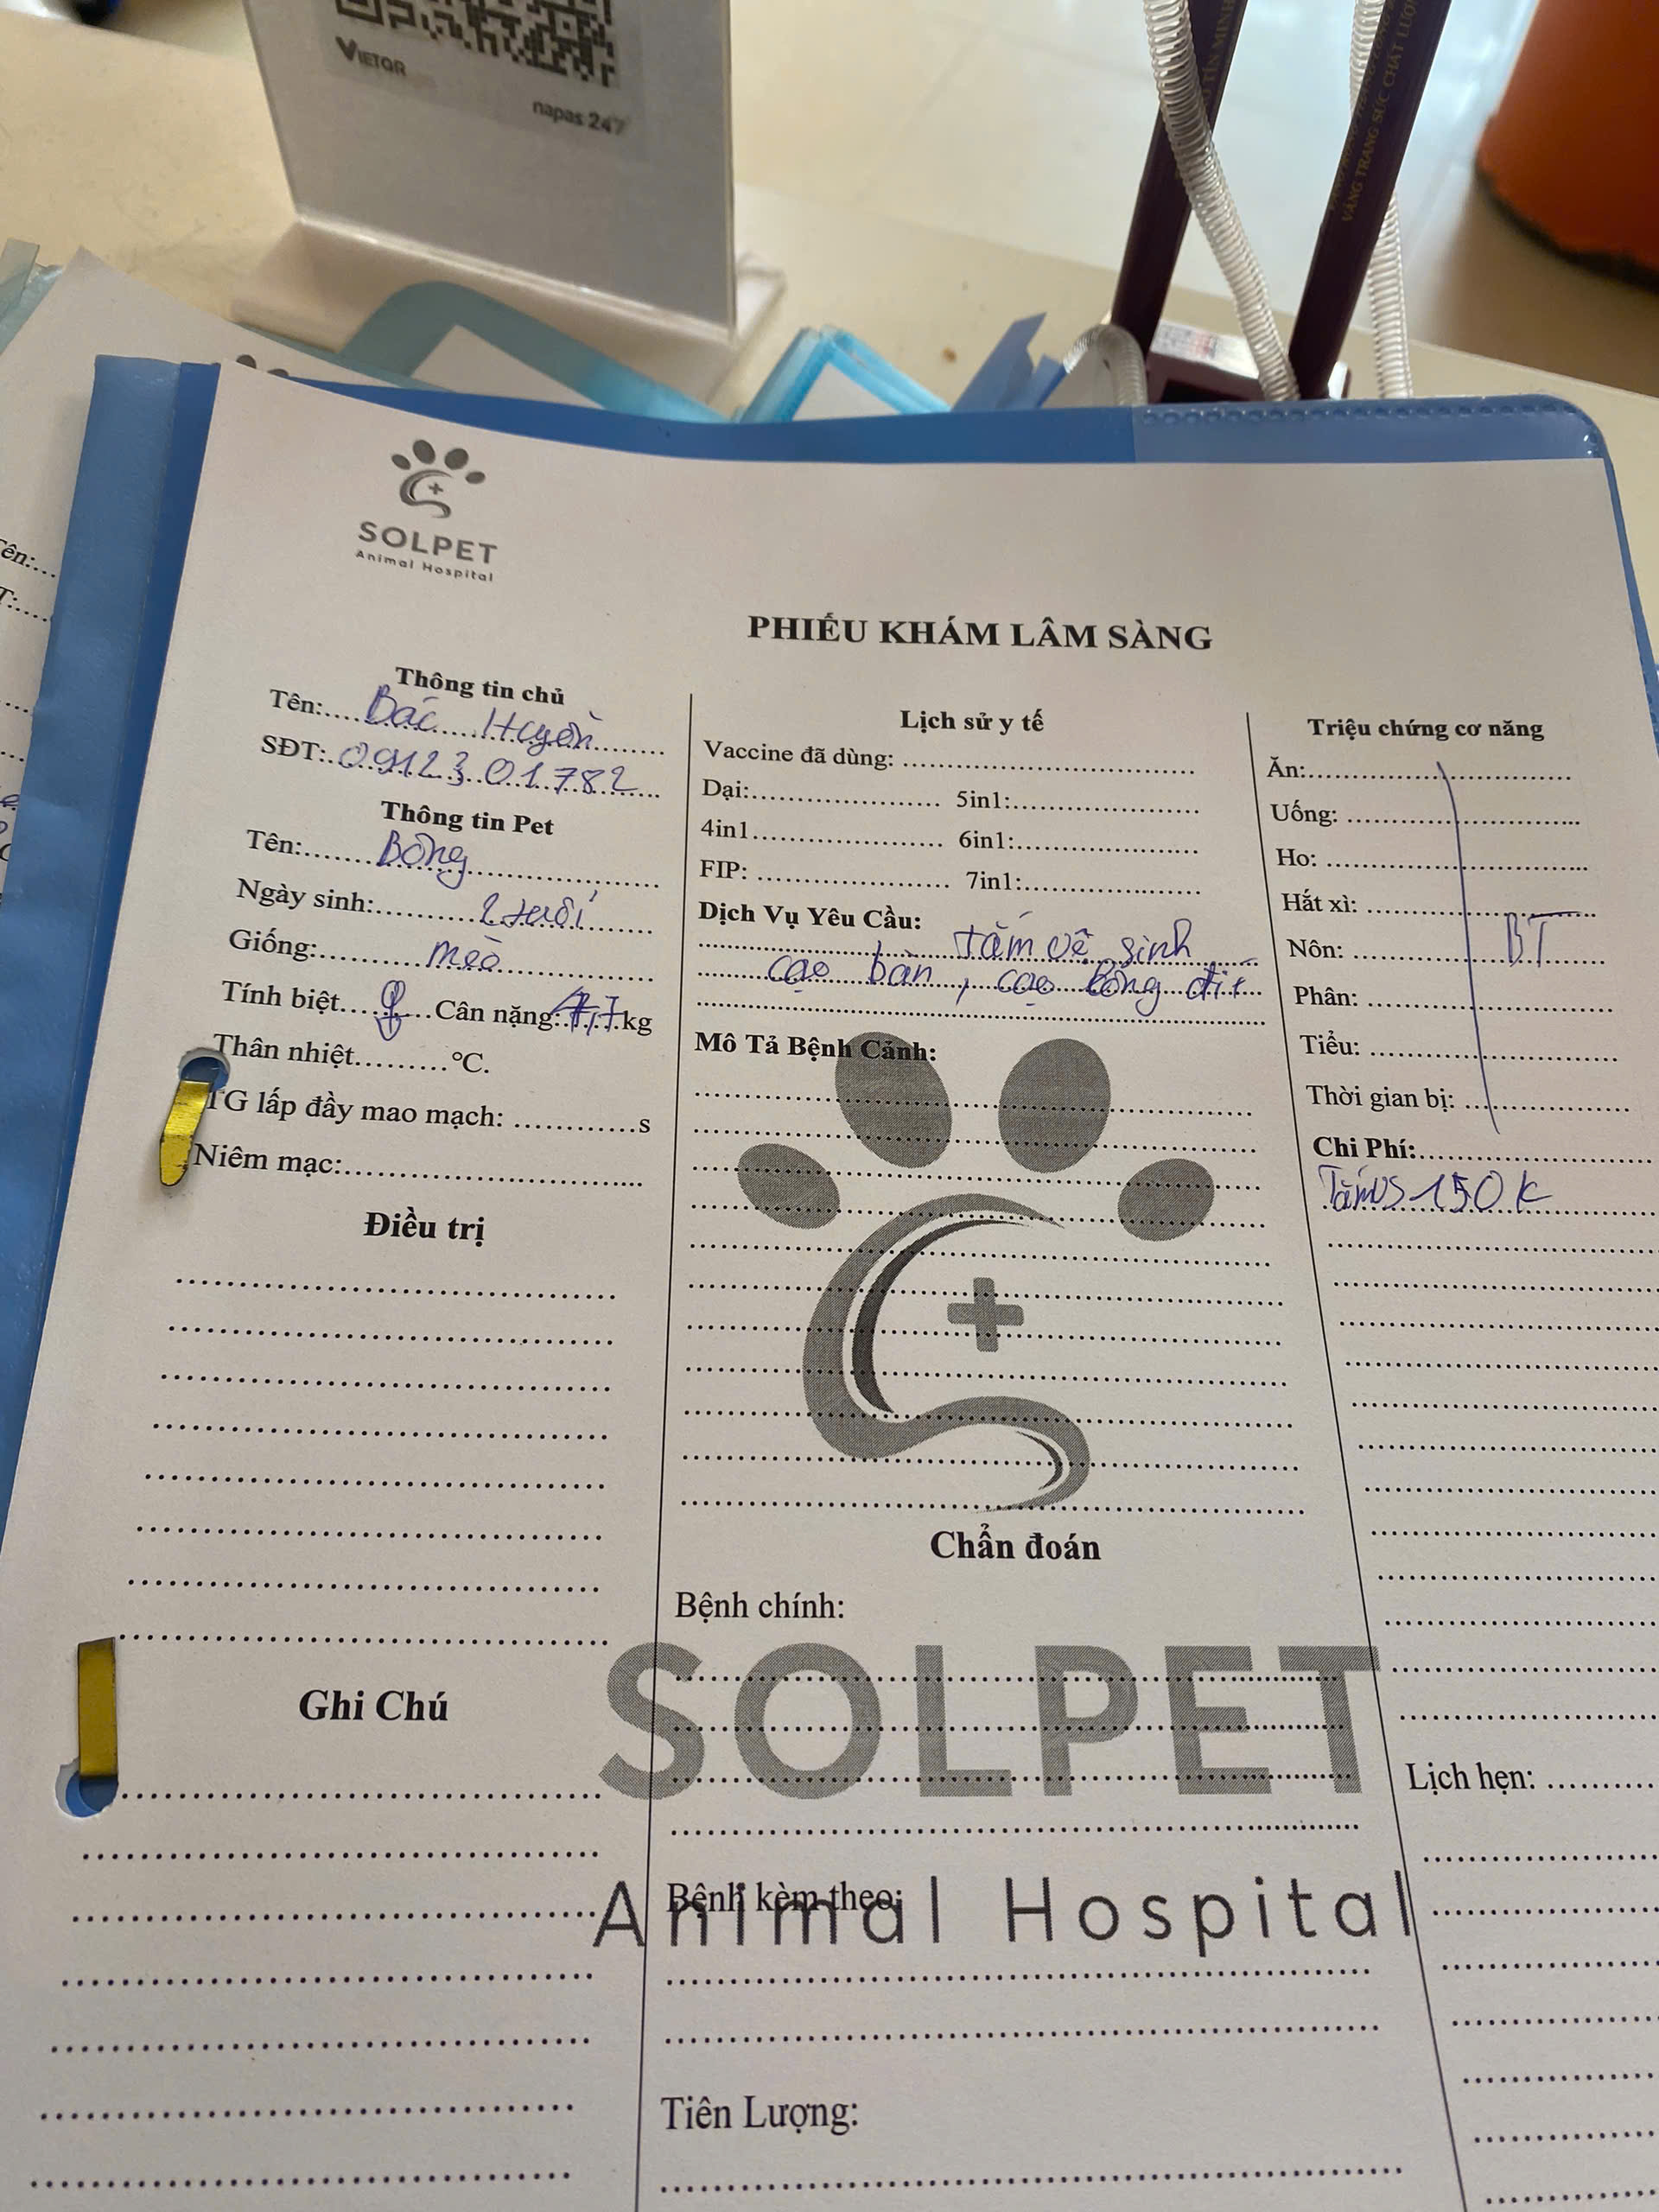 VIETQR
napas 247
VÀNG TRANG SỨC CHẤT LƯỢ
SOLPET
Animal Hospital
PHIẾU KHÁM LÂM SÀNG
Thông tin chủ
Tên: Bác Huyền
SĐT: 0912301782
Thông tin Pet
Tên: Bông
Ngày sinh: 2 tuổi
Giống: mèo
Tính biệt ♀ Cân nặng: 4,7 kg
Thân nhiệt °C.
TG lấp đầy mao mạch: s
Niêm mạc:
Điều trị
Ghi Chú
Lịch sử y tế
Vaccine đã dùng:
Dại: 5in1:
4in1 6in1:
FIP: 7in1:
Dịch Vụ Yêu Cầu:
tắm vệ sinh
cạo bàn, cạo lông đít
Mô Tả Bệnh Cảnh:
Chẩn đoán
Bệnh chính:
SOLPET
Bệnh kèm theo:
Animal Hospital
Tiên Lượng:
Triệu chứng cơ năng
Ăn:
Uống:
Ho:
Hắt xì:
Nôn: BT
Phân:
Tiểu:
Thời gian bị:
Chi Phí:
TắmVS 150K
Lịch hẹn: